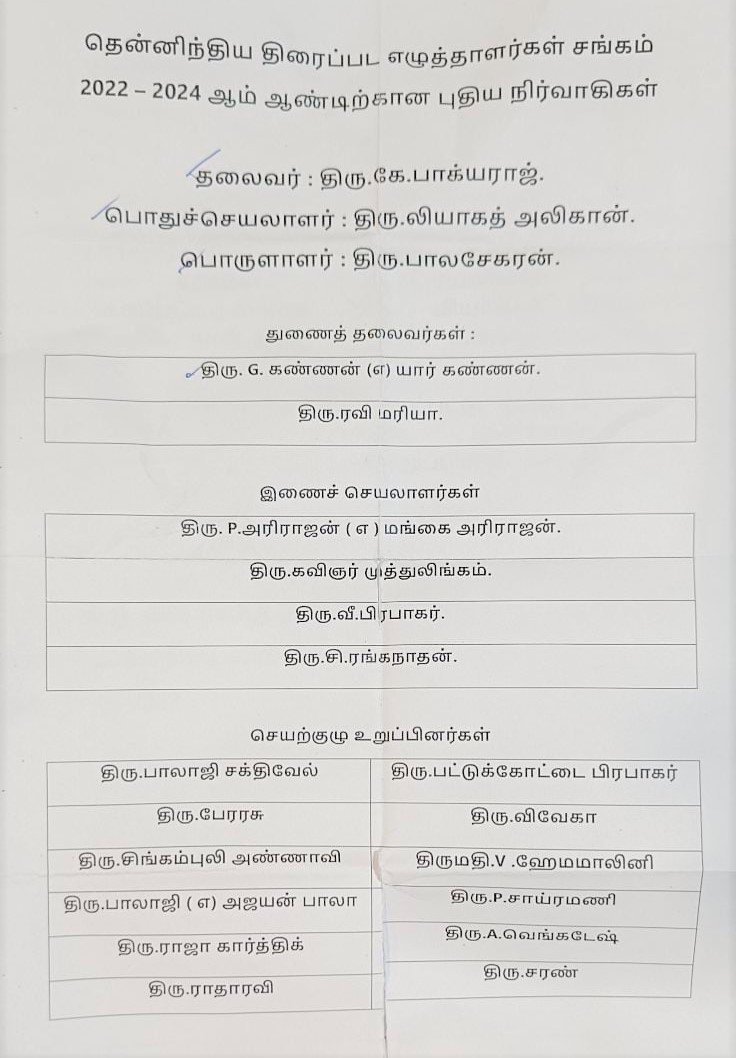 தென்னிந்திய திரைப்பட எழுத்தாளர்கள் சங்கம்
2022 – 2024 ஆம் ஆண்டிற்கான புதிய நிர்வாகிகள்
தலைவர் : திரு.கே.பாக்யராஜ்.
பொதுச்செயலாளர் : திரு.லியாகத் அலிகான்.
பொருளாளர் : திரு.பாலசேகரன்.
துணைத் தலைவர்கள் :
திரு. G. கண்ணன் (எ) யார் கண்ணன்.
திரு.ரவி மரியா.
இணைச் செயலாளர்கள்
திரு. P.அரிராஜன் ( எ ) மங்கை அரிராஜன்.
திரு.கவிஞர் முத்துலிங்கம்.
திரு.வீ.பிரபாகர்.
திரு.சி.ரங்கநாதன்.
செயற்குழு உறுப்பினர்கள்
திரு.பாலாஜி சக்திவேல் திரு.பட்டுக்கோட்டை பிரபாகர்
திரு.பேரரசு திரு.விவேகா
திரு.சிங்கம்புலி அண்ணாவி திருமதி.V .ஹேமமாலினி
திரு.பாலாஜி ( எ) அஜயன் பாலா திரு.P.சாய்ரமணி
திரு.ராஜா கார்த்திக் திரு.A.வெங்கடேஷ்
திரு.ராதாரவி திரு.சரண்